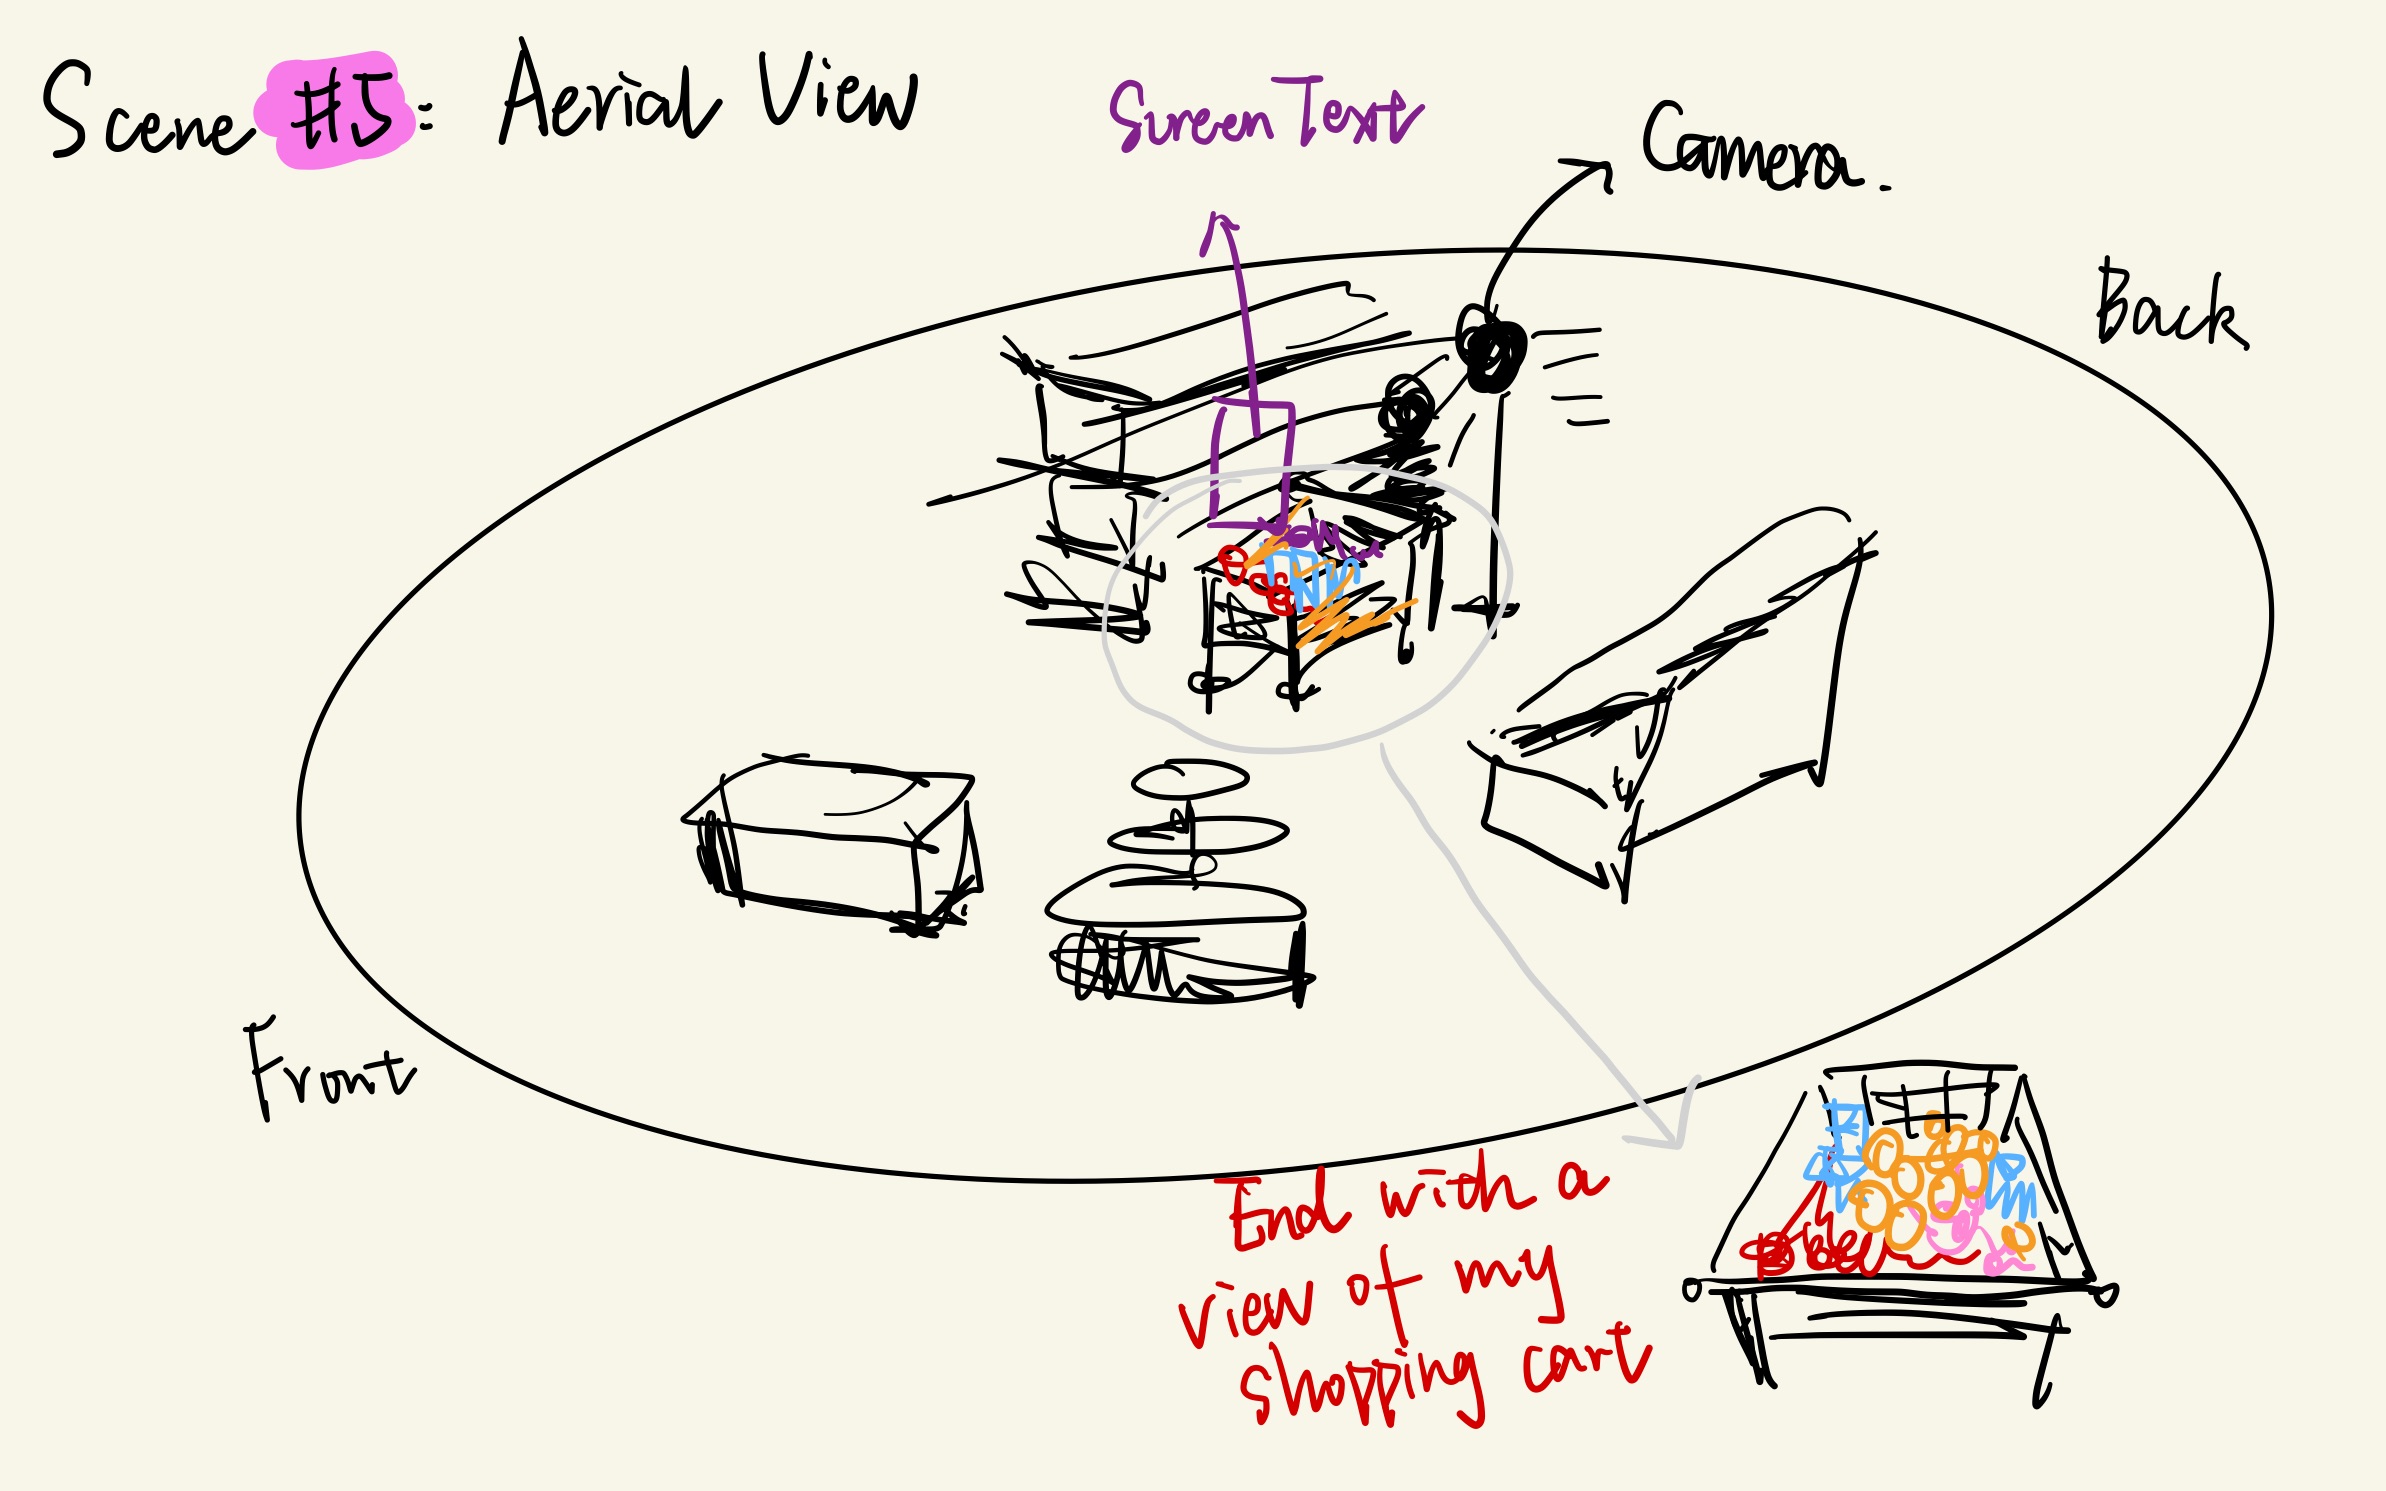 Scene #5: Aerial View
Screen Text
Camera.
Back
Front
End with a
view of my
shopping cart